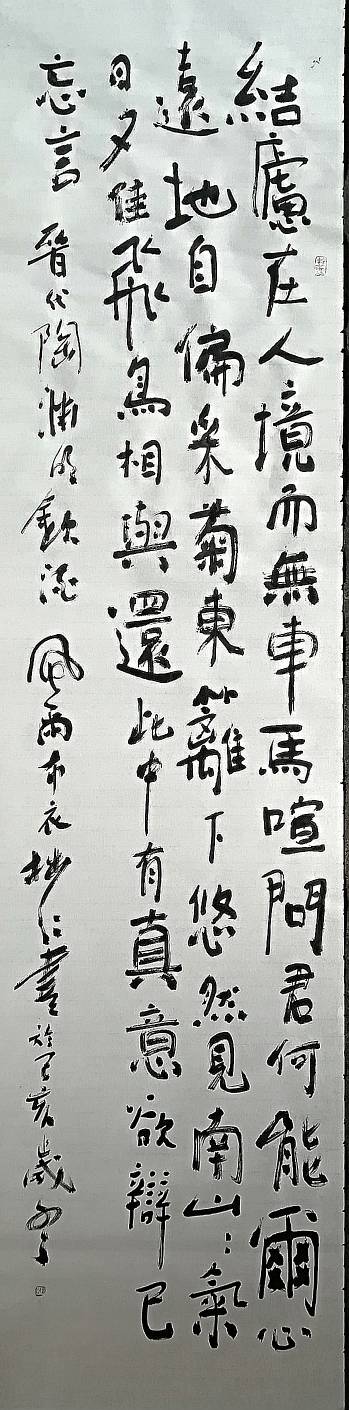 結廬在人境而無車馬喧問君何能爾心
遠地自偏采菊東籬下悠然見南山〻氣
日夕佳飛鳥相與還此中有真意欲辯已
忘言 晉代陶淵明飲酒 風雨布衣 書於己亥歲